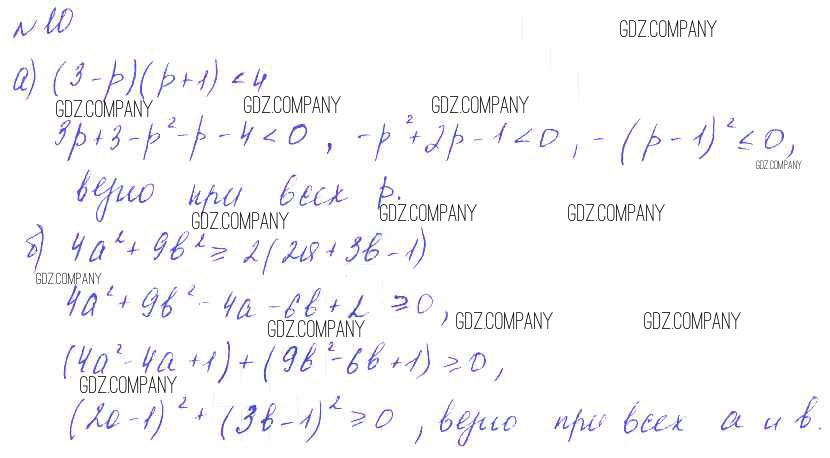 №10
GDZ.COMPANY
а) (3-p)(p+1)<4
GDZ.COMPANY GDZ.COMPANY GDZ.COMPANY
3p+3-p²-p-4<0, -p²+2p-1<0, -(p-1)²≤0,
GDZ.COMPANY
верно при всех p.
GDZ.COMPANY GDZ.COMPANY GDZ.COMPANY
б) 4a²+9b²≥2(2a+3b-1)
GDZ.COMPANY
4a²+9b²-4a-6b+2≥0,
GDZ.COMPANY GDZ.COMPANY GDZ.COMPANY
(4a²-4a+1)+(9b²-6b+1)≥0,
GDZ.COMPANY
(2a-1)²+(3b-1)²≥0, верно при всех a и b.